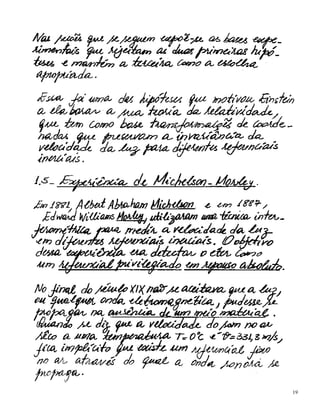 Nas seções que se seguem expõt-se as bases expe-
rimentais que rejeitam as duas primeiras hipó-
teses e mantém a terceira como a escolha
apropriada.
Esta foi uma das hipóteses que motivou Einstein
a elaborar a sua teoria da relatividade,
que tem como base transformações de coorde-
nadas que preservam a invariância da
velocidade da luz para diferentes referenciais
inerciais.
1.5- Experiência de Michelson-Morley.
Em 1881, Albert Abraham Michelson e em 1887,
Edward Williams Morley, utilizaram uma técnica inter-
ferométrica para medir a velocidade da luz
em diferentes referenciais inerciais. O objetivo
dessa experiência era detectar o éter como
um referencial privilegiado em repouso absoluto.
No final do século XIX não se aceitava que a luz,
ou qualquer onda eletromagnética, pudesse se
propagar na ausência de um meio material.
Quando se diz que a velocidade do som no ar
seco a uma temperatura T=0°C é v=331,3 m/s,
fica implícito que existe um referencial fixo
no ar através do qual a onda sonora se
propaga.
19